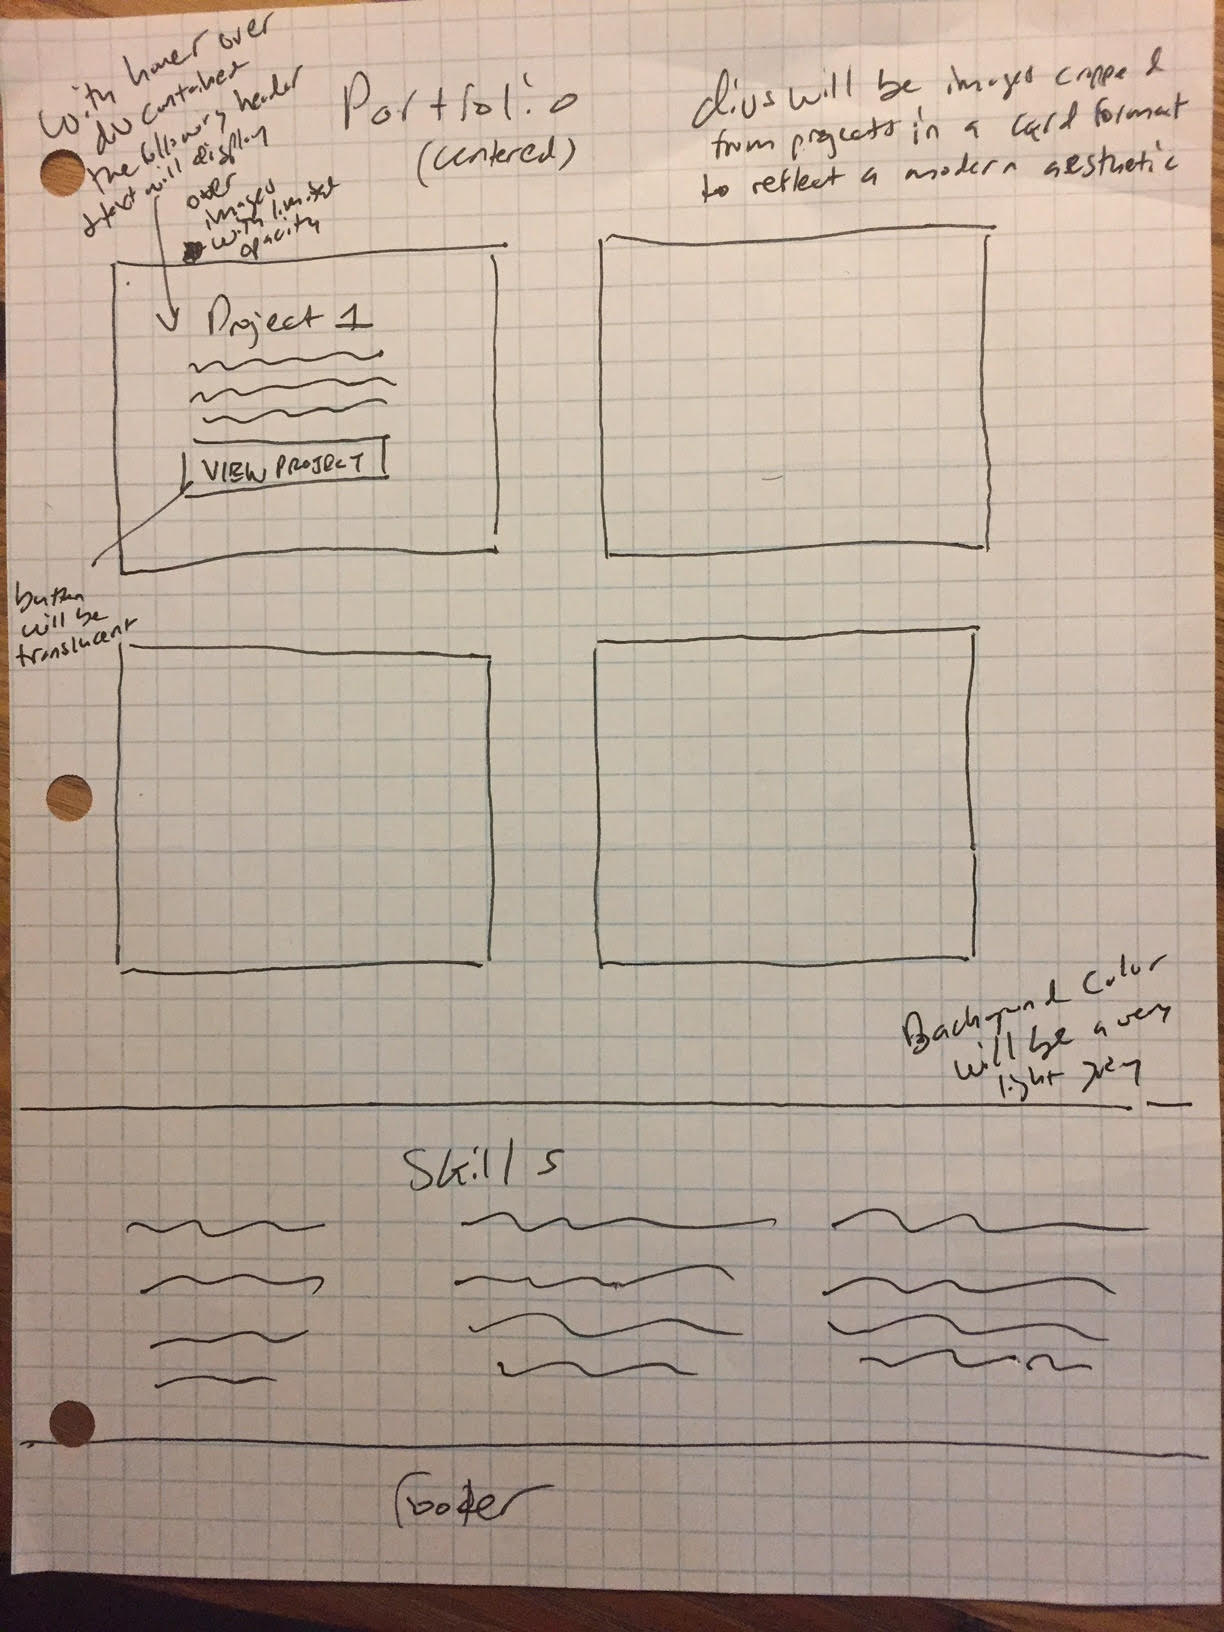 With hover over
div contained
the following header
& text will display
over
images
with limited
opacity
Portfolio
(centered)
divs will be images cropped
from projects in a card format
to reflect a modern aesthetic
Project 1
VIEW PROJECT
button
will be
translucent
Background Color
will be a very
light grey
Skills
Footer